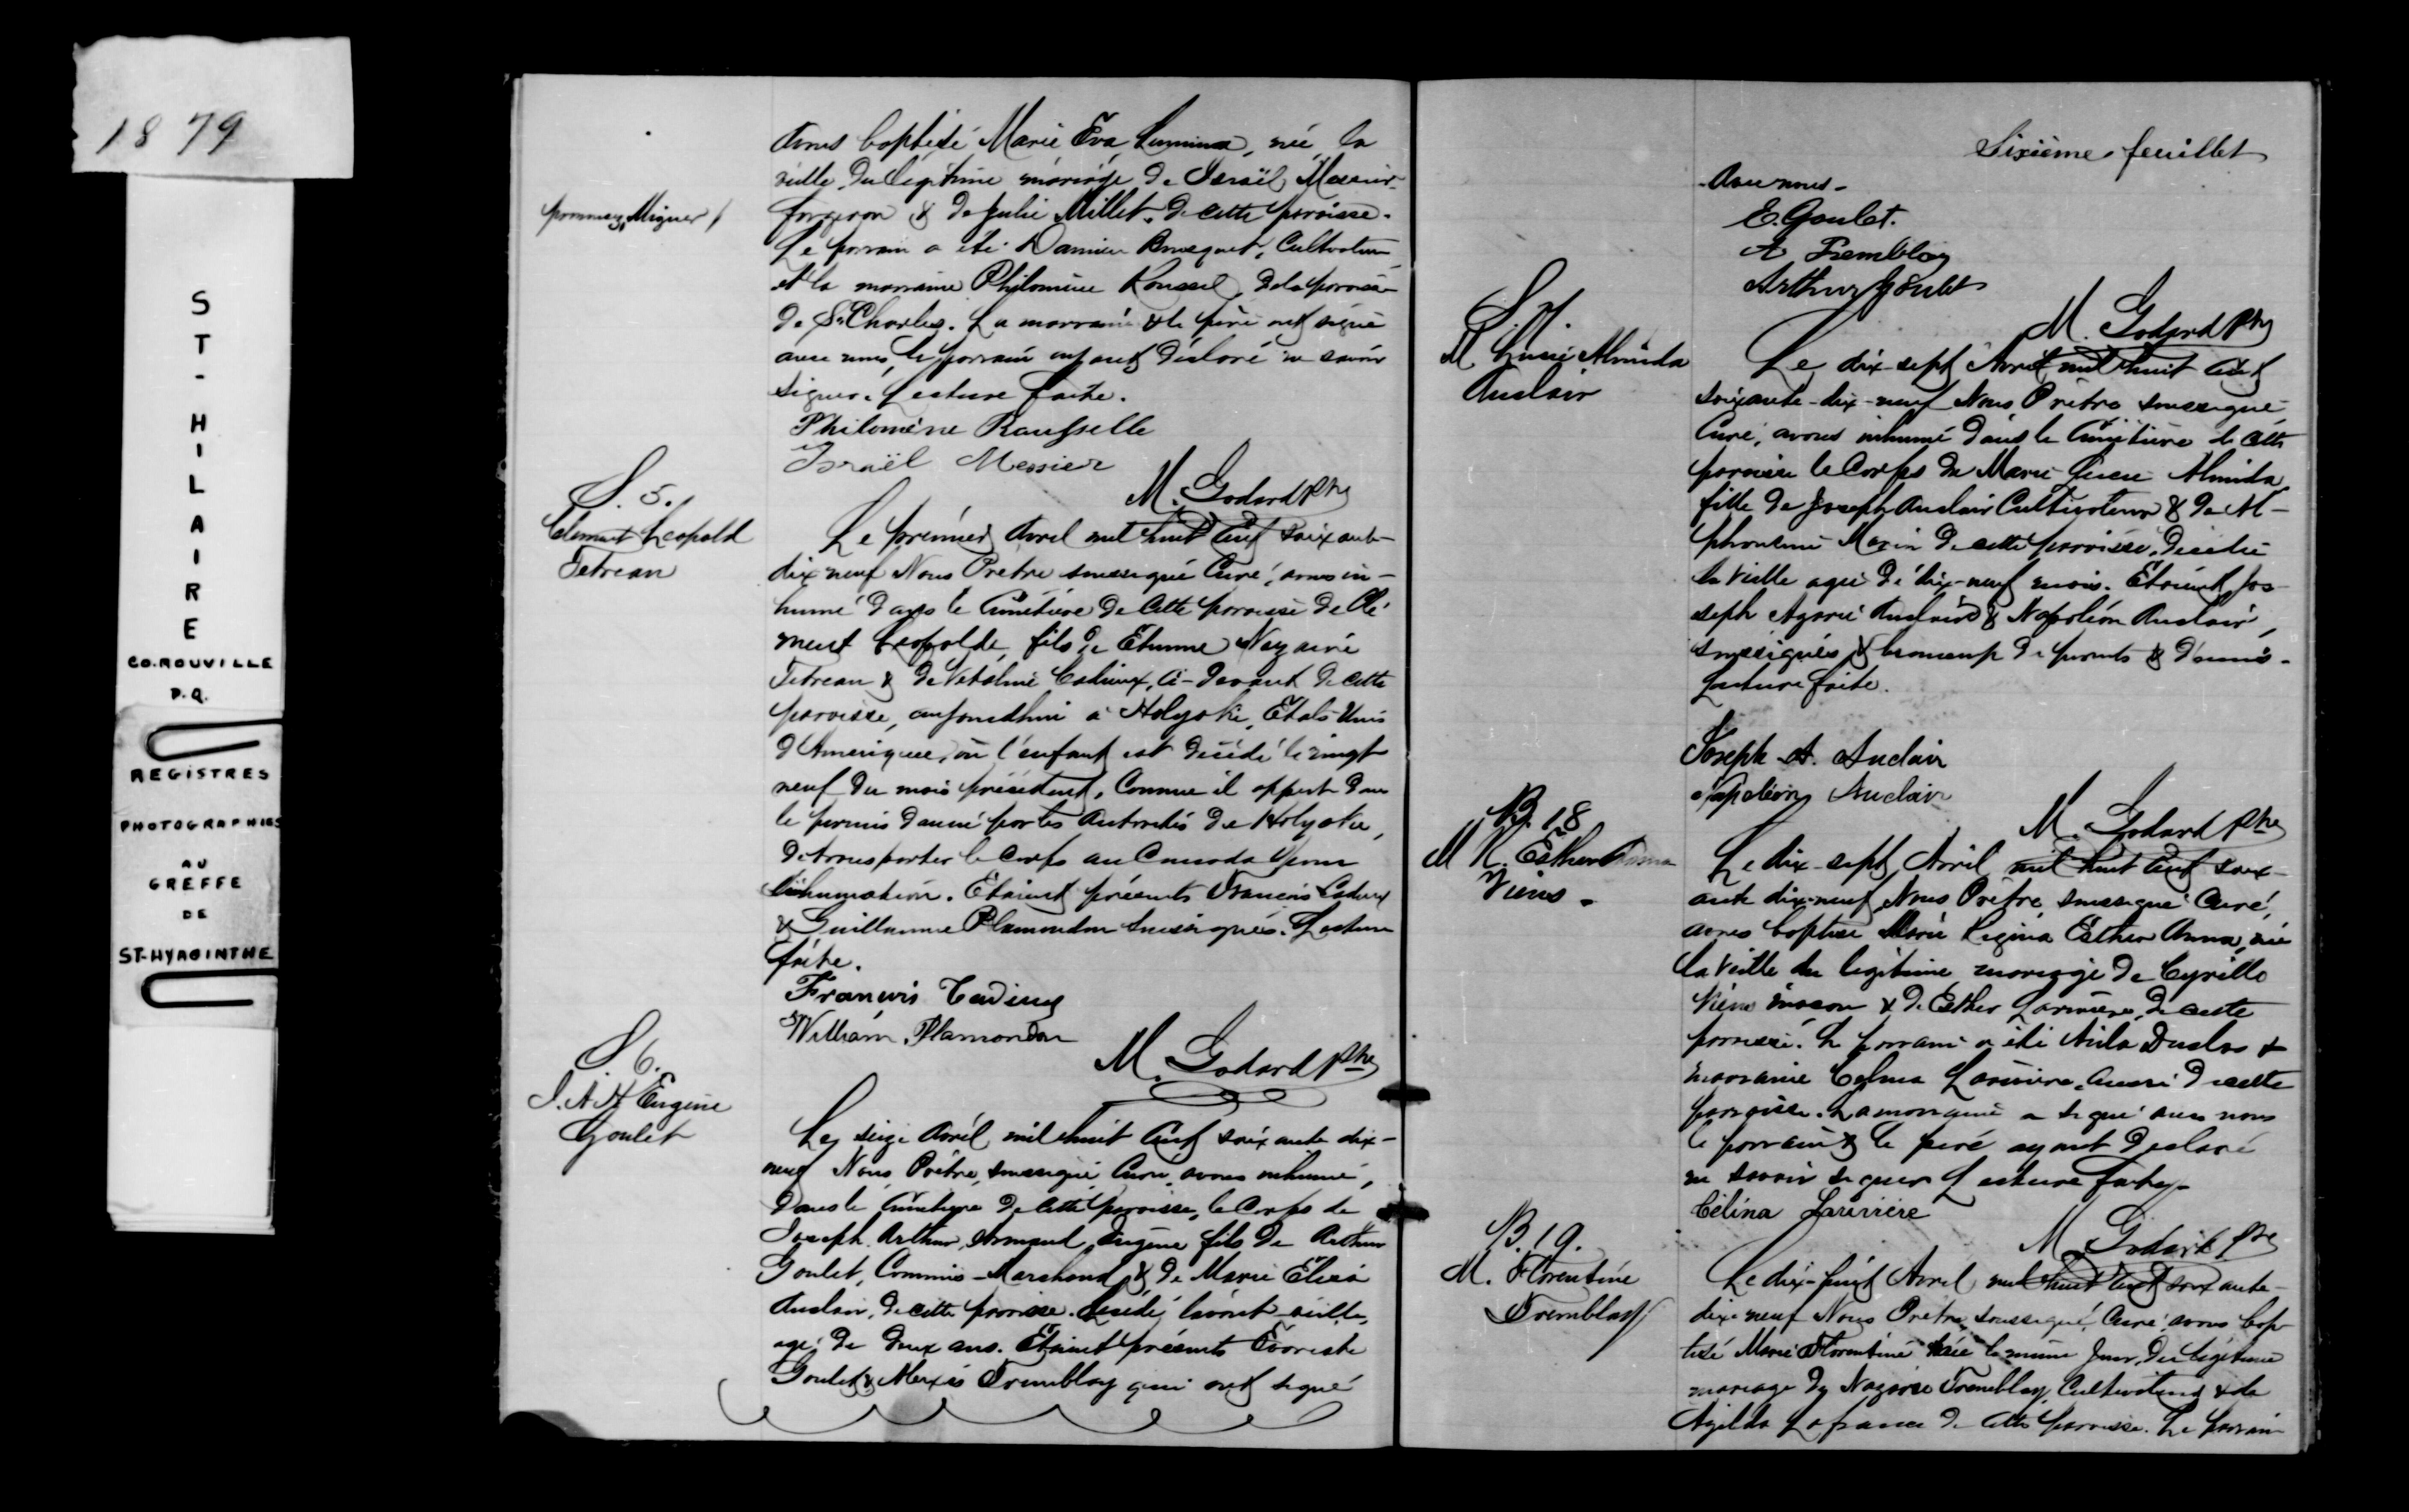 1879
ST-HILAIRE
CO. ROUVILLE
P.Q.
REGISTRES
PHOTOGRAPHIES
AU
GREFFE
DE
ST-HYACINTHE
avons baptisé Marie Eva, née la
veille du légitime mariage de Israël Messier
forgeron & de Julie Millet de cette paroisse.
Le parrain a été Damien Bousquet, Cultivateur
et la marraine Philomène Roussel, de la paroisse
de St Charles. La marraine & le père ont signé
avec nous, le parrain ayant déclaré ne savoir
signer. Lecture faite.
Philomène Rousselle
Israël Messier
M. Godard Ptre
S. 5.
Clement Leopold
Tetreau
Le premier Avril mil huit cent soixante-
dix neuf Nous Prêtre soussigné Curé, avons in-
humé dans le Cimetière de cette paroisse de Clé-
ment Leopolde, fils de Etienne Nazaire
Tetreau & de Vitaline Cadieux, ci-devant de cette
paroisse, aujourdhui à Holyoke, Etats Unis
d'Amerique, où l'enfant est décédé le vingt
neuf du mois précédent, Comme il appert dans
le permis donné par les Autorités de Holyoke,
de transporter le corps au Canada pour
l'inhumation. Etaient présents Francois Cadieux
& Guillaume Plamondon soussignés. Lecture
faite.
Francois Cadieux
William Plamondon
M. Godard Ptre
S 6.
J. A. A. Eugène
Goulet
Le seize Avril mil huit cent soixante dix-
neuf Nous Prêtre, soussigné Curé, avons inhumé,
dans le Cimetière de cette paroisse, le Corps de
Joseph Arthur Armand Eugène fils de Arthur
Goulet, Commis-Marchand & de Marie Eliza
Auclair, de cette paroisse. décédé l'avant-veille,
agé de deux ans. Etaient présents Evariste
Goulet & Alexis Tremblay qui ont signé
Sixième feuillet
avec nous.
E. Goulet.
A Tremblay
Arthur Goulet
M. Godard Ptre
S. 7.
M. Lucie Almida
Auclair
Le dix-sept Avril mil huit cent
soixante-dix-neuf Nous Prêtre soussigné
Curé, avons inhumé dans le Cimetière de cette
paroisse le Corps de Marie Lucie Almida
fille de Joseph Auclair Cultivateur & de Al-
phonsine de cette paroisse, décédée
la veille agée de dix-neuf mois. Etaient Jo-
seph Auclair & Napoléon Auclair,
soussignés & beaucoup de parents & d'amis.
Lecture faite.
Joseph A. Auclair
Napoléon Auclair
M. Godard Ptre
B. 18
M R. Esther Anna
Viens.
Le dix-sept Avril mil huit cent soix-
ante dix-neuf Nous Prêtre soussigné Curé,
avons baptisé Marie Regina Esther Anna, née
la veille du legitime mariage de Cyrille
Viens maçon & de Esther Larivière, de cette
paroisse. Le parrain a été Duclos &
marraine Célina Larivière, aussi de cette
paroisse. La marraine a signé avec nous
le parrain & le père ayant déclaré
ne savoir signer Lecture faite.
Célina Larivière
M. Godard Ptre
B. 19.
M. Florentine
Tremblay
Le dix-huit Avril mil huit cent soixante-
dix-neuf Nous Prêtre soussigné, Curé, avons bap-
tisé Marie Florentine née le même jour, du légitime
mariage de Nazaire Tremblay, Cultivateur & de
Azilda Lafrance de cette paroisse. Le parrain